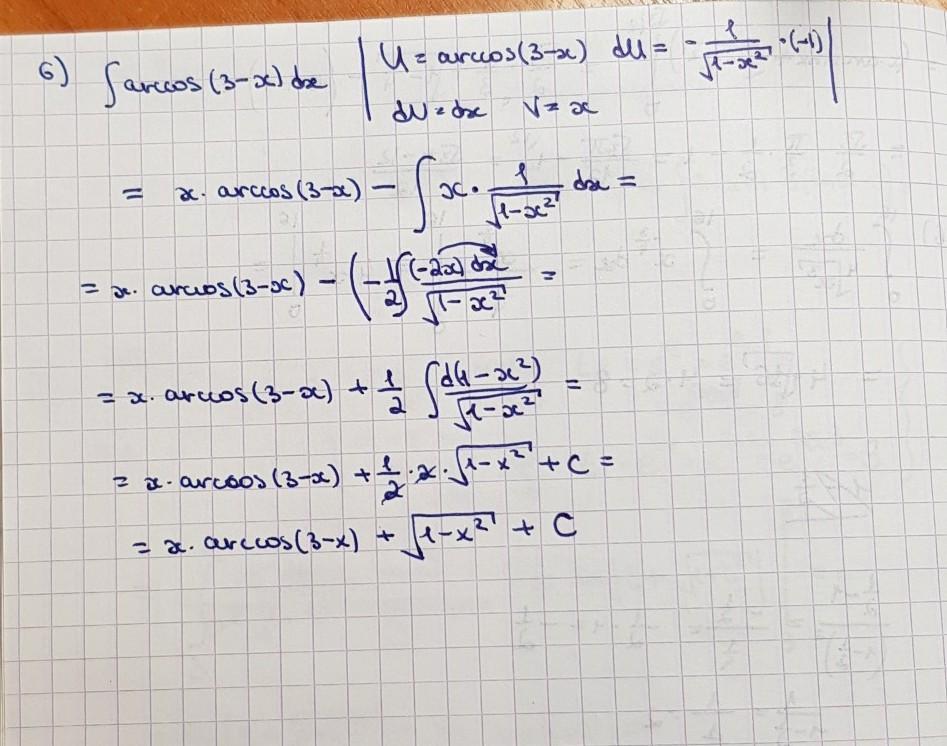 6) ∫arccos(3-x)dx | U = arccos(3-x) dU = - 1/√(1-x²) · (-1) |
dV = dx V = x
= x · arccos(3-x) - ∫ x · 1/√(1-x²) dx =
= x · arccos(3-x) - (-1/2 ∫ (-2x) dx/√(1-x²) =
= x · arccos(3-x) + 1/2 ∫ d(1-x²)/√(1-x²) =
= x · arccos(3-x) + 1/2 · 2 · √(1-x²) + C =
= x · arccos(3-x) + √(1-x²) + C